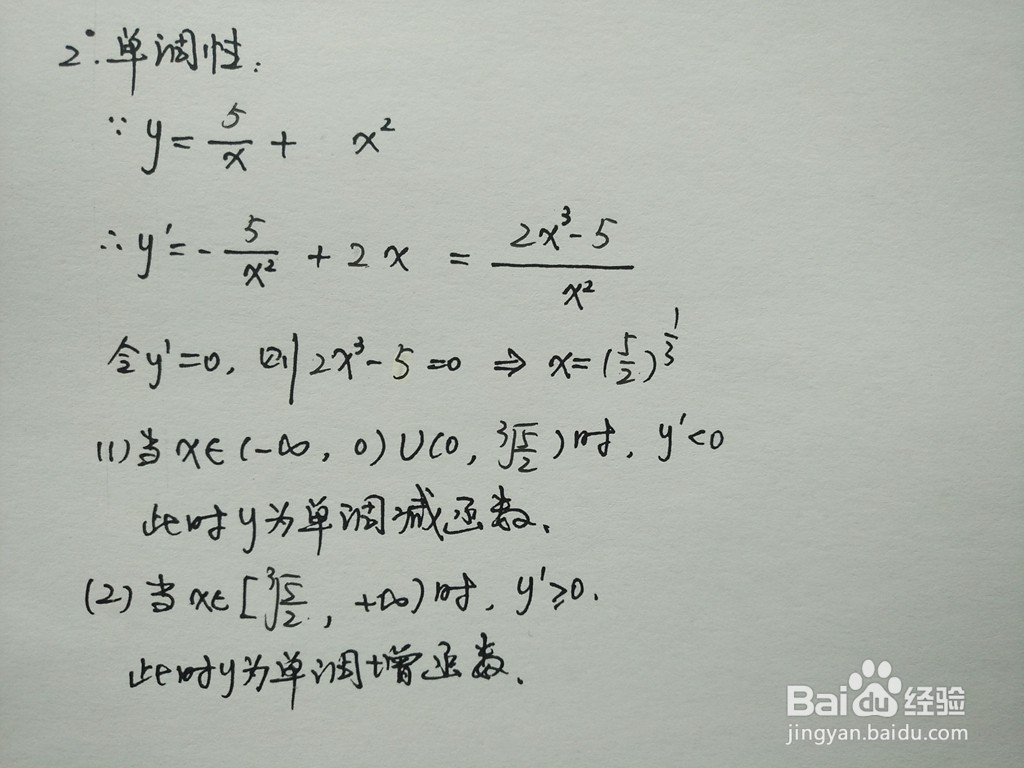 2°. 单调性:
∵ y = 5/x + x²
∴ y' = -5/x² + 2x = (2x³-5)/x²
令y'=0, 则 2x³-5=0 ⇒ x=(5/2)^(1/3)
(1)当 x∈(-∞, 0)∪(0, ³√(5/2))时, y'<0
此时y为单调减函数.
(2)当 x∈[³√(5/2), +∞)时, y'≥0.
此时y为单调增函数.
Baidu经验
jingyan.baidu.com